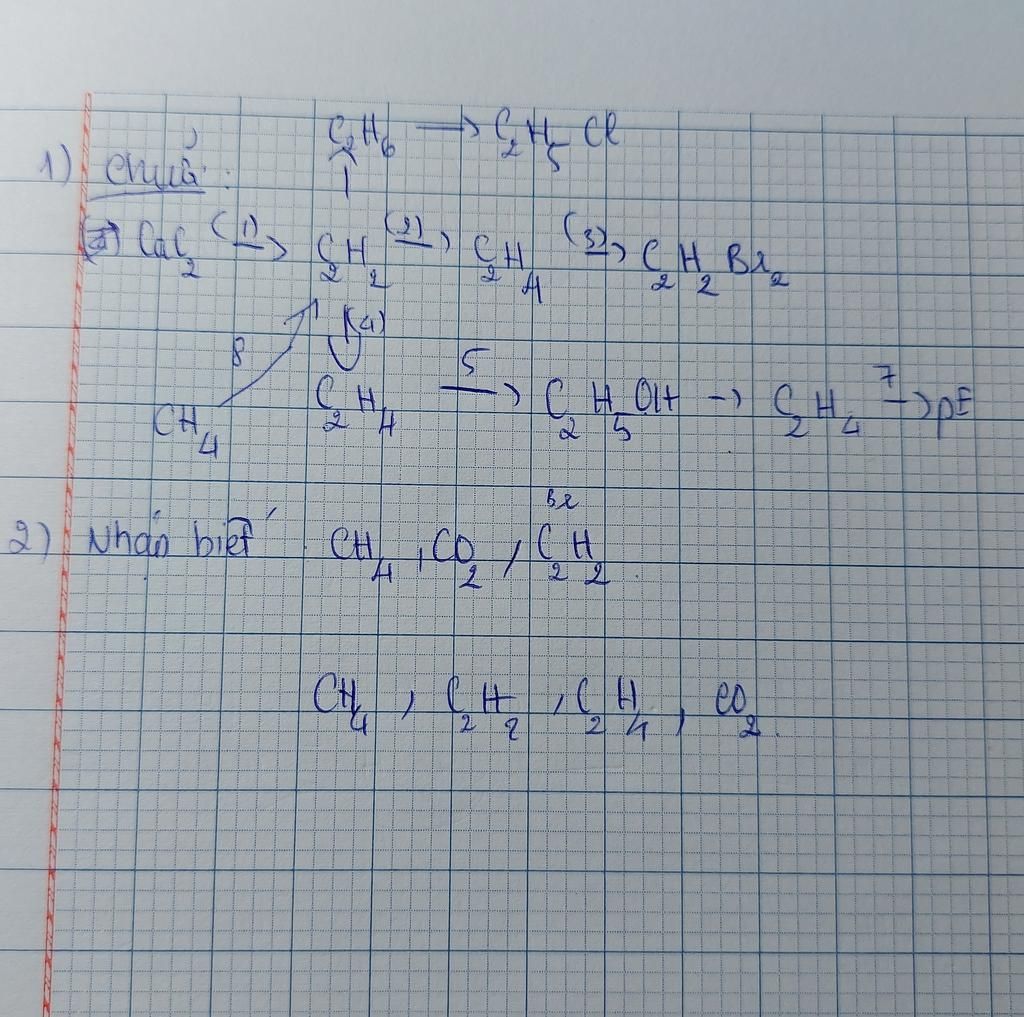 C2H6 → C2H5Cl
1) Chuỗi:
CaC2 (1)→ C2H2 (2)→ C2H4 (3)→ C2H2Br2
(4)
8
CH4
C2H4 5→ C2H5OH → C2H4 7→ pE
Br
2) Nhận biết CH4, CO2, C2H2.
CH4, C2H2, C2H4, CO2.